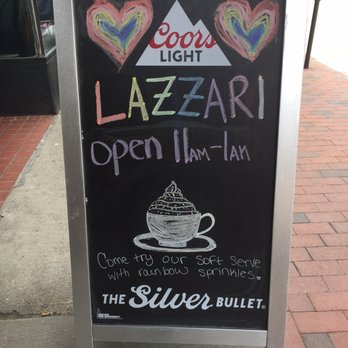 Coors
LIGHT
LAZZARI
open 11AM-1AM
Come try our soft serve
with rainbow sprinkles.
THE Silver BULLET